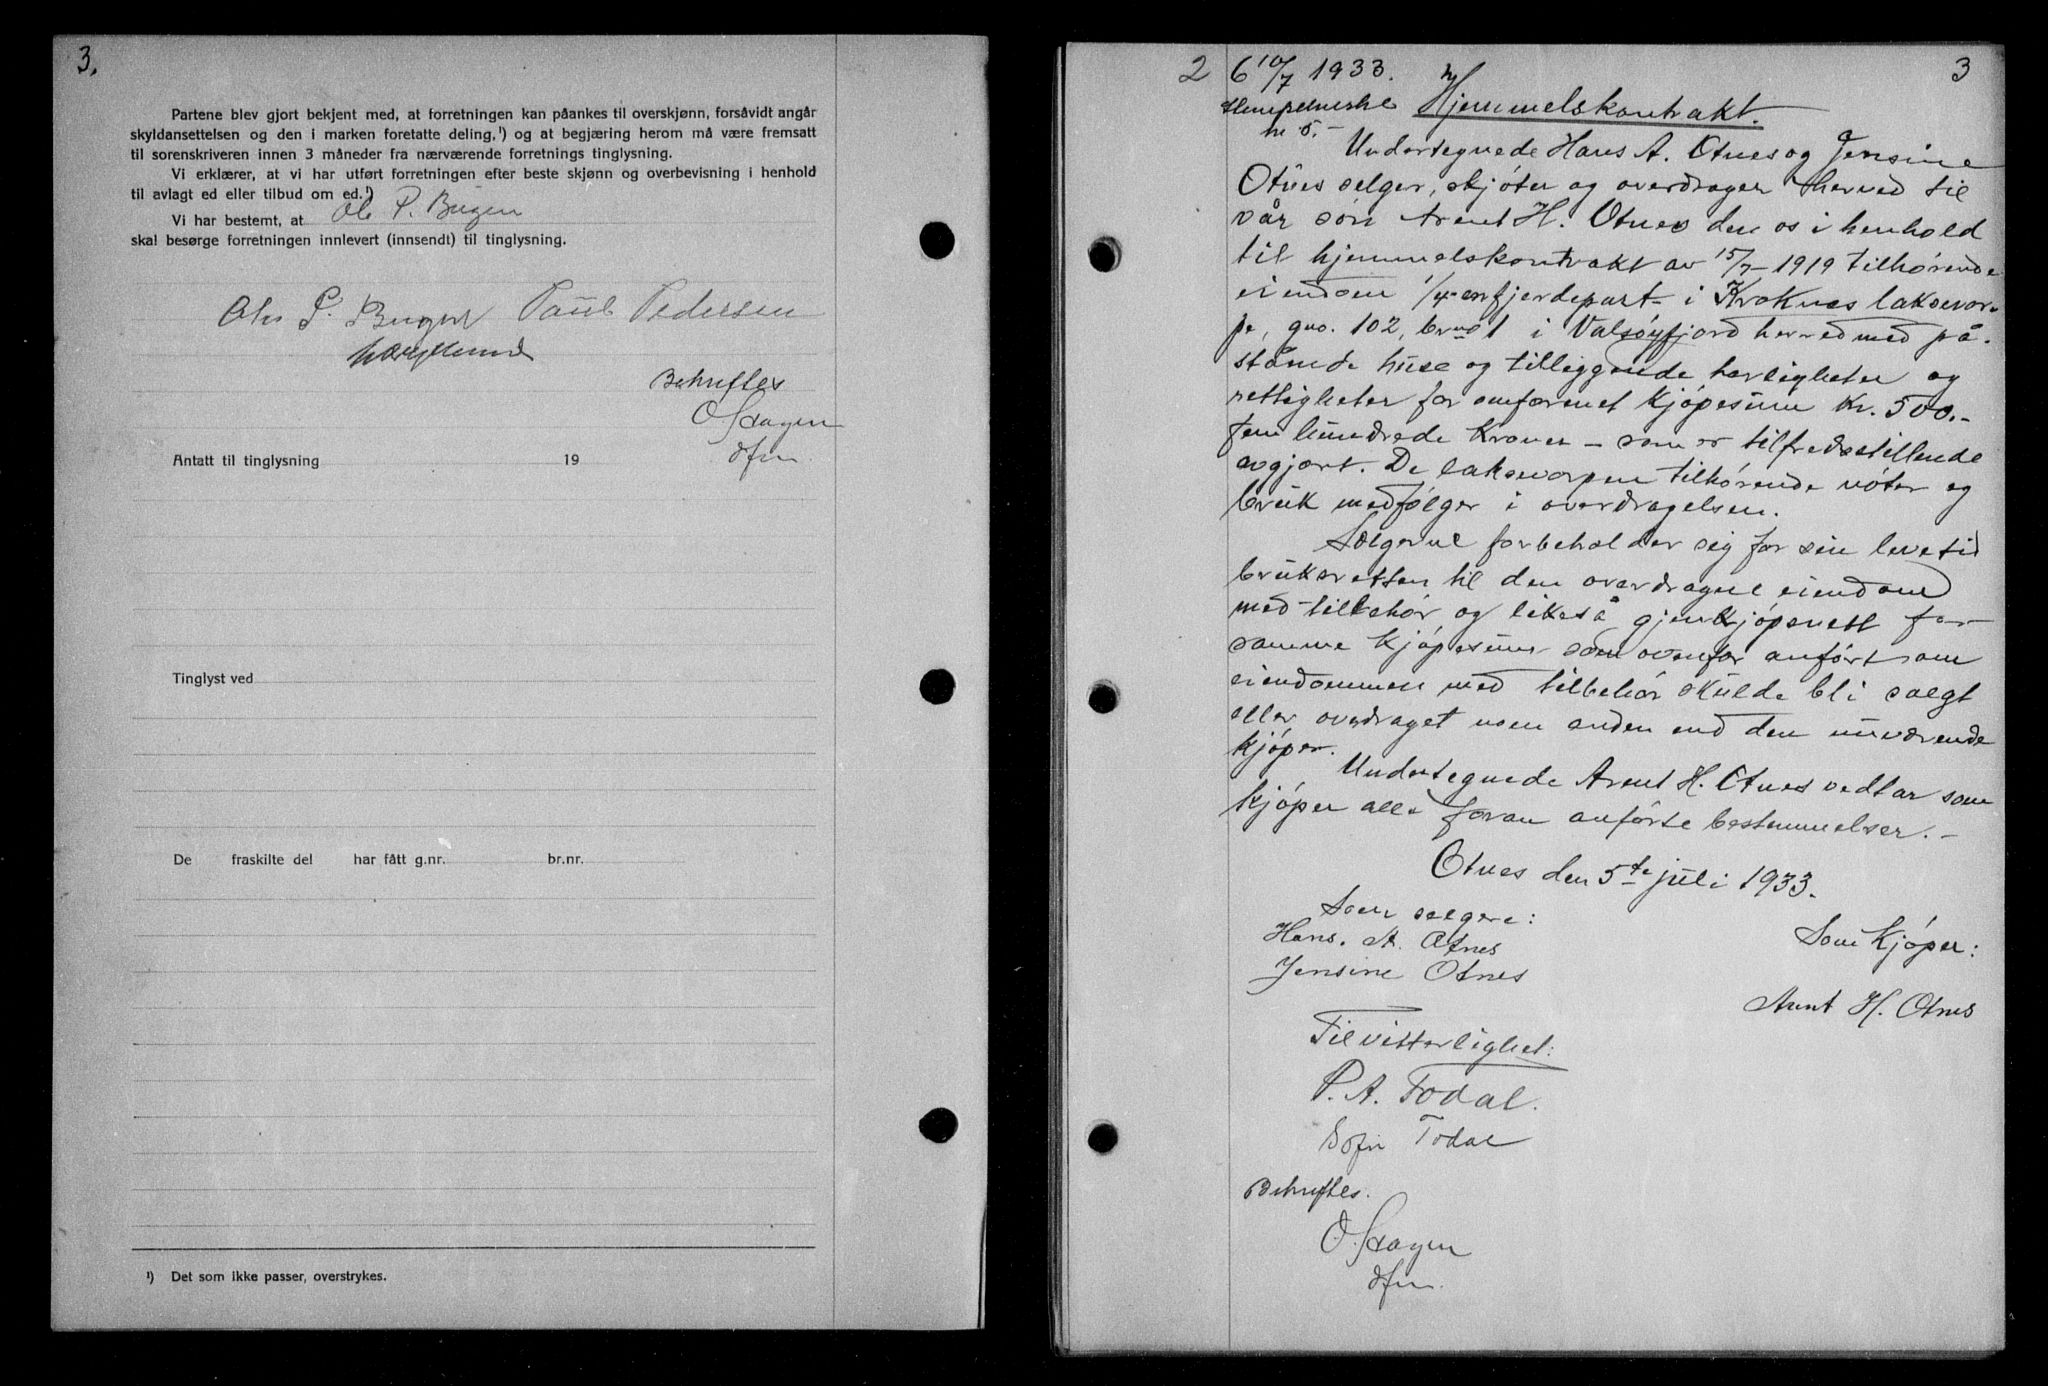 3.
Partene blev gjort bekjent med, at forretningen kan påankes til overskjønn, forsåvidt angår
skyldansettelsen og den i marken foretatte deling,¹) og at begjæring herom må være fremsatt
til sorenskriveren innen 3 måneder fra nærværende forretnings tinglysning.
Vi erklærer, at vi har utført forretningen efter beste skjønn og overbevisning i henhold
til avlagt ed eller tilbud om ed.¹)
Vi har bestemt, at Ole P. Bugen
skal besørge forretningen innlevert (innsendt) til tinglysning.
Ole P. Bugen Paul Pedersen
Bekreftes
O Skagen
Antatt til tinglysning 19
Tinglyst ved
De fraskilte del har fått g.nr. br.nr.
¹) Det som ikke passer, overstrykes.
2 6 10/7 1933. 3
Hjemmelskontrakt.
Undertegnede Hans A. Otnes og Jensine
Otnes selger, skjøter og overdrager herved til
vår søn Arent H. Otnes den os i henhold
til hjemmelskontrakt av 15/7-1919 tilhørende
eiendom 1/4-enfjerdepart- i Kroknes laksevor-
pe, gno. 102, brno 1 i Valsøyfjord herred med på-
stående huse og tilliggende herligheter og
rettigheter for omforenet kjøpesum Kr. 500.-
fem hundrede Kroner - som er tilfredsstillende
avgjort. De laksevorpen tilhørende nøter og
bruk medfølger i overdragelsen.
Sælgerne forbeholder sig for sin levetid
bruksretten til den overdragne eiendom
med tilbehør, og likeså gjenkjøpsrett for
samme kjøpesum som ovenfor anført om
eiendommen med tilbehør skulde bli solgt
eller overdraget noen anden end den nuværende
kjøper.
Undertegnede Arent H. Otnes vedtar som
kjøper alle foran anførte bestemmelser. -
Otnes den 5te juli 1933.
Som selgere:
Hans. A. Otnes
Jensine Otnes
Som kjøper:
Arent H. Otnes
Til vitterlighet:
P. A. Todal.
Sofie Todal
Bekreftes.
O. Skagen